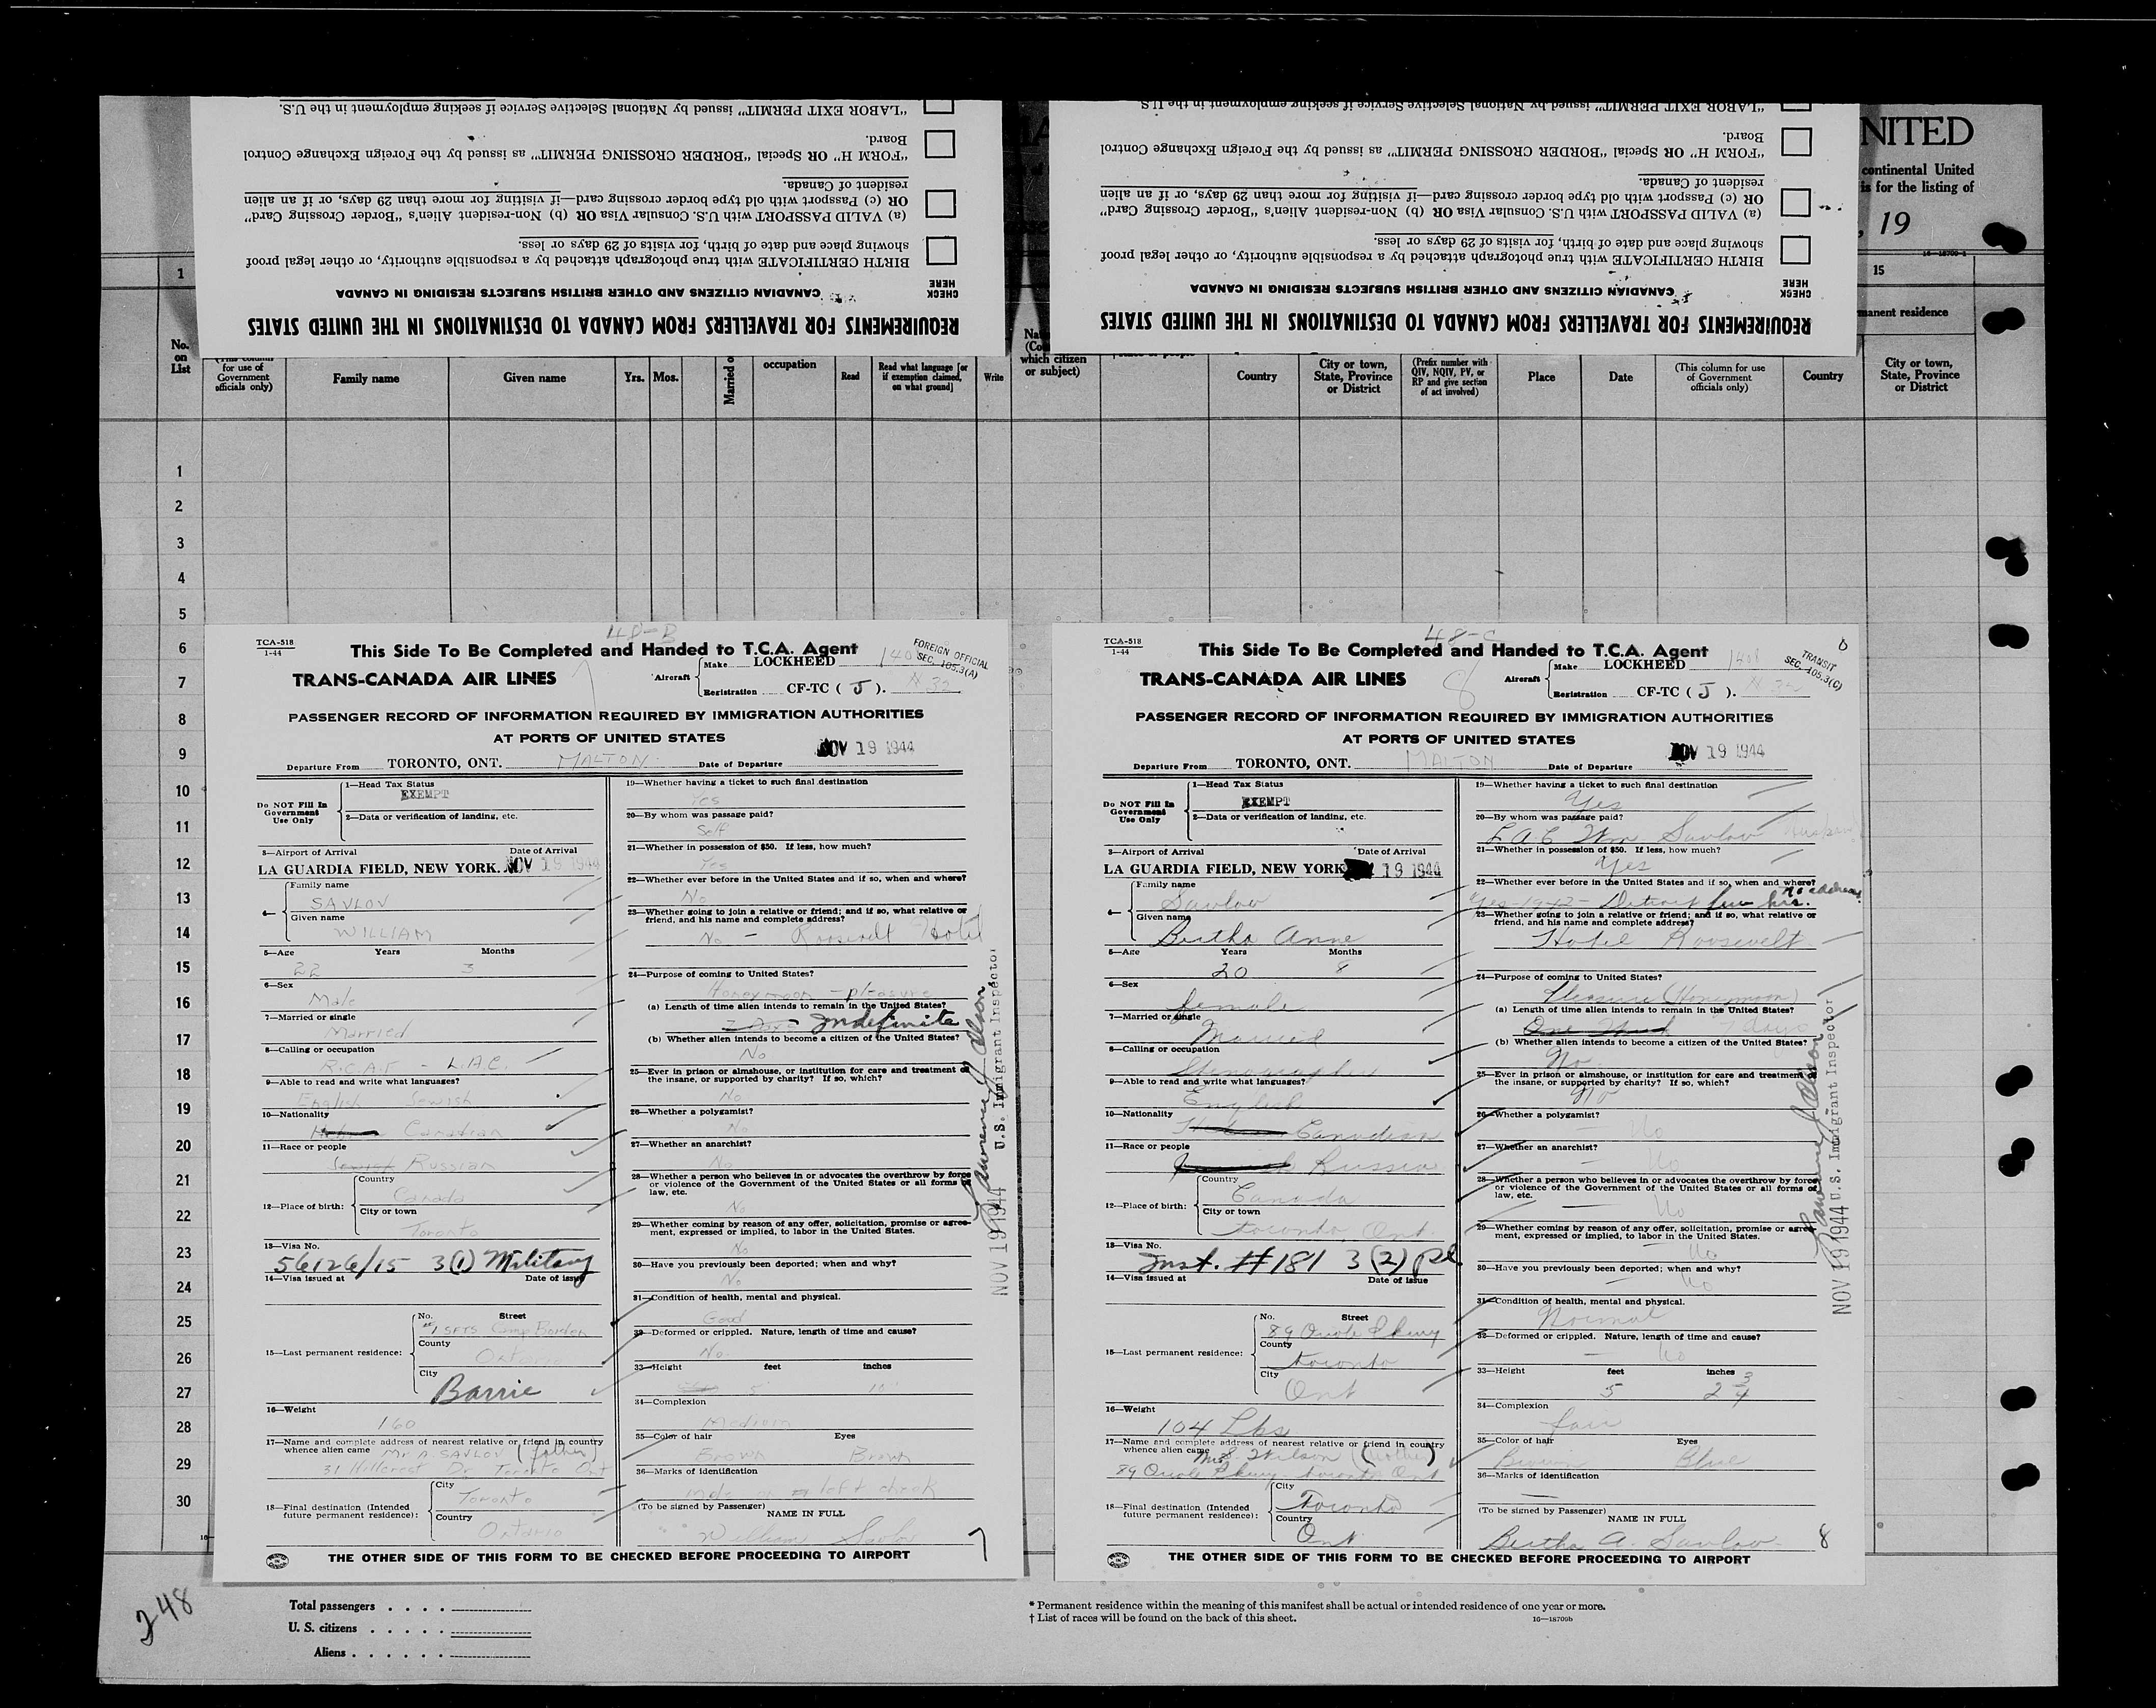 "LABOR EXIT PERMIT" issued by National Selective Service if seeking employment in the U.S.
"FORM H" OR Special "BORDER CROSSING PERMIT" as issued by the Foreign Exchange Control
Board.
(a) VALID PASSPORT with U.S. Consular Visa OR (b) Non-resident Alien's "Border Crossing Card"
OR (c) Passport with old type border crossing card—if visiting for more than 29 days, or if an alien
resident of Canada.
BIRTH CERTIFICATE with true photograph attached by a responsible authority, or other legal proof
showing place and date of birth, for visits of 29 days or less.
CHECK
HERE
CANADIAN CITIZENS AND OTHER BRITISH SUBJECTS RESIDING IN CANADA
REQUIREMENTS FOR TRAVELLERS FROM CANADA TO DESTINATIONS IN THE UNITED STATES
"LABOR EXIT PERMIT" issued by National Selective Service if seeking employment in the U.S.
"FORM H" OR Special "BORDER CROSSING PERMIT" as issued by the Foreign Exchange Control
Board.
(a) VALID PASSPORT with U.S. Consular Visa OR (b) Non-resident Alien's "Border Crossing Card"
OR (c) Passport with old type border crossing card—if visiting for more than 29 days, or if an alien
resident of Canada.
BIRTH CERTIFICATE with true photograph attached by a responsible authority, or other legal proof
showing place and date of birth, for visits of 29 days or less.
CHECK
HERE
CANADIAN CITIZENS AND OTHER BRITISH SUBJECTS RESIDING IN CANADA
REQUIREMENTS FOR TRAVELLERS FROM CANADA TO DESTINATIONS IN THE UNITED STATES
NITED
continental United
is for the listing of
, 19
16—18700-1
1
15
manent residence
No.
on
List
(This column
for use of
Government
officials only)
Family name
Given name
Yrs.
Mos.
Married o
occupation
Read
Read what language [or
if exemption claimed,
on what ground]
Write
Na
(Co
which citizen
or subject)
Country
City or town,
State, Province
or District
(Prefix number with
QIV, NQIV, PV, or
RP and give section
of act involved)
Place
Date
(This column for use
of Government
officials only)
Country
City or town,
State, Province
or District
1
2
3
4
5
6
7
8
9
10
11
12
13
14
15
16
17
18
19
20
21
22
23
24
25
26
27
28
29
30
48-B
TCA-518
1-44
This Side To Be Completed and Handed to T.C.A. Agent
FOREIGN OFFICIAL
SEC. 105.3(A)
TRANS-CANADA AIR LINES
7
Aircraft
Make LOCKHEED 1408
Registration CF-TC ( J ). N 32
PASSENGER RECORD OF INFORMATION REQUIRED BY IMMIGRATION AUTHORITIES
AT PORTS OF UNITED STATES
Departure From TORONTO, ONT. MALTON Date of Departure NOV 19 1944
Do NOT Fill In
Government
Use Only
1—Head Tax Status
EXEMPT
2—Data or verification of landing, etc.
3—Airport of Arrival Date of Arrival
LA GUARDIA FIELD, NEW YORK. NOV 19 1944
4—
Family name
SAVLOV
Given name
WILLIAM
5—Age Years Months
22 3
6—Sex
Male
7—Married or single
Married
8—Calling or occupation
R.C.A.F - L.A.C.
9—Able to read and write what languages?
English Jewish
10—Nationality
Canadian
11—Race or people
Jewish Russian
12—Place of birth:
Country
Canada
City or town
Toronto
13—Visa No.
56126/15 3(1) Military
14—Visa issued at Date of issue
15—Last permanent residence:
No. Street
#1 SFTS Camp Borden
County
Ontario
City
Barrie
16—Weight
160
17—Name and complete address of nearest relative or friend in country
whence alien came Mr A SAVLOV (father)
31 Hillcrest Dr Toronto Ont
18—Final destination (Intended
future permanent residence):
City
Toronto
Country
Ontario
19—Whether having a ticket to such final destination
Yes
20—By whom was passage paid?
Self
21—Whether in possession of $50. If less, how much?
Yes
22—Whether ever before in the United States and if so, when and where?
No
23—Whether going to join a relative or friend; and if so, what relative or
friend, and his name and complete address?
No - Roosevelt Hotel
24—Purpose of coming to United States?
Honeymoon - pleasure
(a) Length of time alien intends to remain in the United States?
Indefinite
(b) Whether alien intends to become a citizen of the United States?
No
25—Ever in prison or almshouse, or institution for care and treatment of
the insane, or supported by charity? If so, which?
No
26—Whether a polygamist?
No
27—Whether an anarchist?
No
28—Whether a person who believes in or advocates the overthrow by force
or violence of the Government of the United States or all forms of
law, etc.
No
29—Whether coming by reason of any offer, solicitation, promise or agree-
ment, expressed or implied, to labor in the United States.
No
30—Have you previously been deported; when and why?
No
31—Condition of health, mental and physical.
Good
32—Deformed or crippled. Nature, length of time and cause?
No
33—Height feet inches
5 10
34—Complexion
Medium
35—Color of hair Eyes
Brown Brown
36—Marks of identification
Mole on left cheek
(To be signed by Passenger)
NAME IN FULL
William Savlov
7
THE OTHER SIDE OF THIS FORM TO BE CHECKED BEFORE PROCEEDING TO AIRPORT
NOV 19 1944 U.S. Immigrant Inspector
48-C
TCA-518
1-44
This Side To Be Completed and Handed to T.C.A. Agent
TRANSIT
SEC. 105.3(C)
TRANS-CANADA AIR LINES
8
Aircraft
Make LOCKHEED 1408
Registration CF-TC ( J ). N 32
PASSENGER RECORD OF INFORMATION REQUIRED BY IMMIGRATION AUTHORITIES
AT PORTS OF UNITED STATES
Departure From TORONTO, ONT. MALTON Date of Departure NOV 19 1944
Do NOT Fill In
Government
Use Only
1—Head Tax Status
EXEMPT
2—Data or verification of landing, etc.
3—Airport of Arrival Date of Arrival
LA GUARDIA FIELD, NEW YORK 19 1944
4—
Family name
Savlov
Given name
Bertha Anne
5—Age Years Months
20 8
6—Sex
female
7—Married or single
Married
8—Calling or occupation
Stenographer
9—Able to read and write what languages?
English
10—Nationality
Canadian
11—Race or people
Russian
12—Place of birth:
Country
Canada
City or town
Toronto, Ont
13—Visa No.
Inst. #181 3(2) pl.
14—Visa issued at Date of issue
15—Last permanent residence:
No. Street
89 Oriole Pkwy
County
Toronto
City
Ont
16—Weight
104 Lbs
17—Name and complete address of nearest relative or friend in country
whence alien came Mrs S. Wilson (Mother)
89 Oriole Pkwy Toronto Ont
18—Final destination (Intended
future permanent residence):
City
Toronto
Country
Ont
19—Whether having a ticket to such final destination
Yes
20—By whom was passage paid?
L.A.C Wm. Savlov Husband
21—Whether in possession of $50. If less, how much?
Yes
22—Whether ever before in the United States and if so, when and where?
Yes-1942- Detroit few hrs. no address
23—Whether going to join a relative or friend; and if so, what relative or
friend, and his name and complete address?
Hotel Roosevelt
24—Purpose of coming to United States?
Pleasure (Honeymoon)
(a) Length of time alien intends to remain in the United States?
One Week 7 days
(b) Whether alien intends to become a citizen of the United States?
No
25—Ever in prison or almshouse, or institution for care and treatment of
the insane, or supported by charity? If so, which?
No
26—Whether a polygamist?
No
27—Whether an anarchist?
No
28—Whether a person who believes in or advocates the overthrow by force
or violence of the Government of the United States or all forms of
law, etc.
No
29—Whether coming by reason of any offer, solicitation, promise or agree-
ment, expressed or implied, to labor in the United States.
No
30—Have you previously been deported; when and why?
No
31—Condition of health, mental and physical.
Normal
32—Deformed or crippled. Nature, length of time and cause?
No
33—Height feet inches
5 2 3/4
34—Complexion
fair
35—Color of hair Eyes
Brown Blue
36—Marks of identification
(To be signed by Passenger)
NAME IN FULL
Bertha A. Savlov
8
THE OTHER SIDE OF THIS FORM TO BE CHECKED BEFORE PROCEEDING TO AIRPORT
NOV 19 1944 U.S. Immigrant Inspector
248
Total passengers
U. S. citizens
Aliens
* Permanent residence within the meaning of this manifest shall be actual or intended residence of one year or more.
† List of races will be found on the back of this sheet.
16—18700b